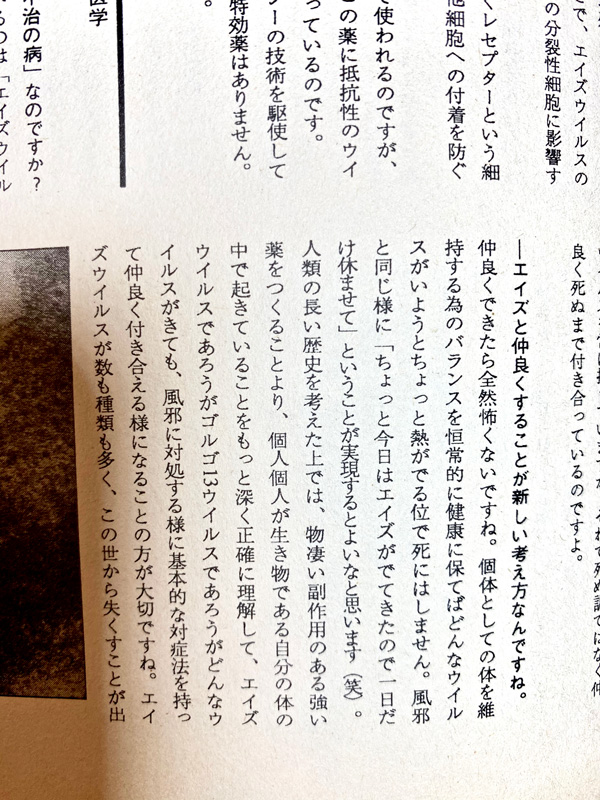 で、エイズウイルスの
の分裂性細胞に影響す
くレセプターという細
他細胞への付着を防ぐ
で使われるのですが、
この薬に抵抗性のウイ
っているのです。
ーの技術を駆使して
特効薬はありません。
。
医学
不治の病」なのですか?
るのは「エイズウイル
良く死ぬまで付き合っているのですよ。
―エイズと仲良くすることが新しい考え方なんですね。
仲良くできたら全然怖くないですね。個体としての体を維
持する為のバランスを恒常的に健康に保てばどんなウイル
スがいようとちょっと熱がでる位で死にはしません。風邪
と同じ様に「ちょっと今日はエイズがでてきたので一日だ
け休ませて」ということが実現するとよいなと思います(笑)。
人類の長い歴史を考えた上では、物凄い副作用のある強い
薬をつくることより、個人個人が生き物である自分の体の
中で起きていることをもっと深く正確に理解して、エイズ
ウイルスであろうがゴルゴ13ウイルスであろうがどんなウ
イルスがきても、風邪に対処する様に基本的な対症法を持っ
て仲良く付き合える様になることの方が大切ですね。エイ
ズウイルスが数も種類も多く、この世から失くすことが出